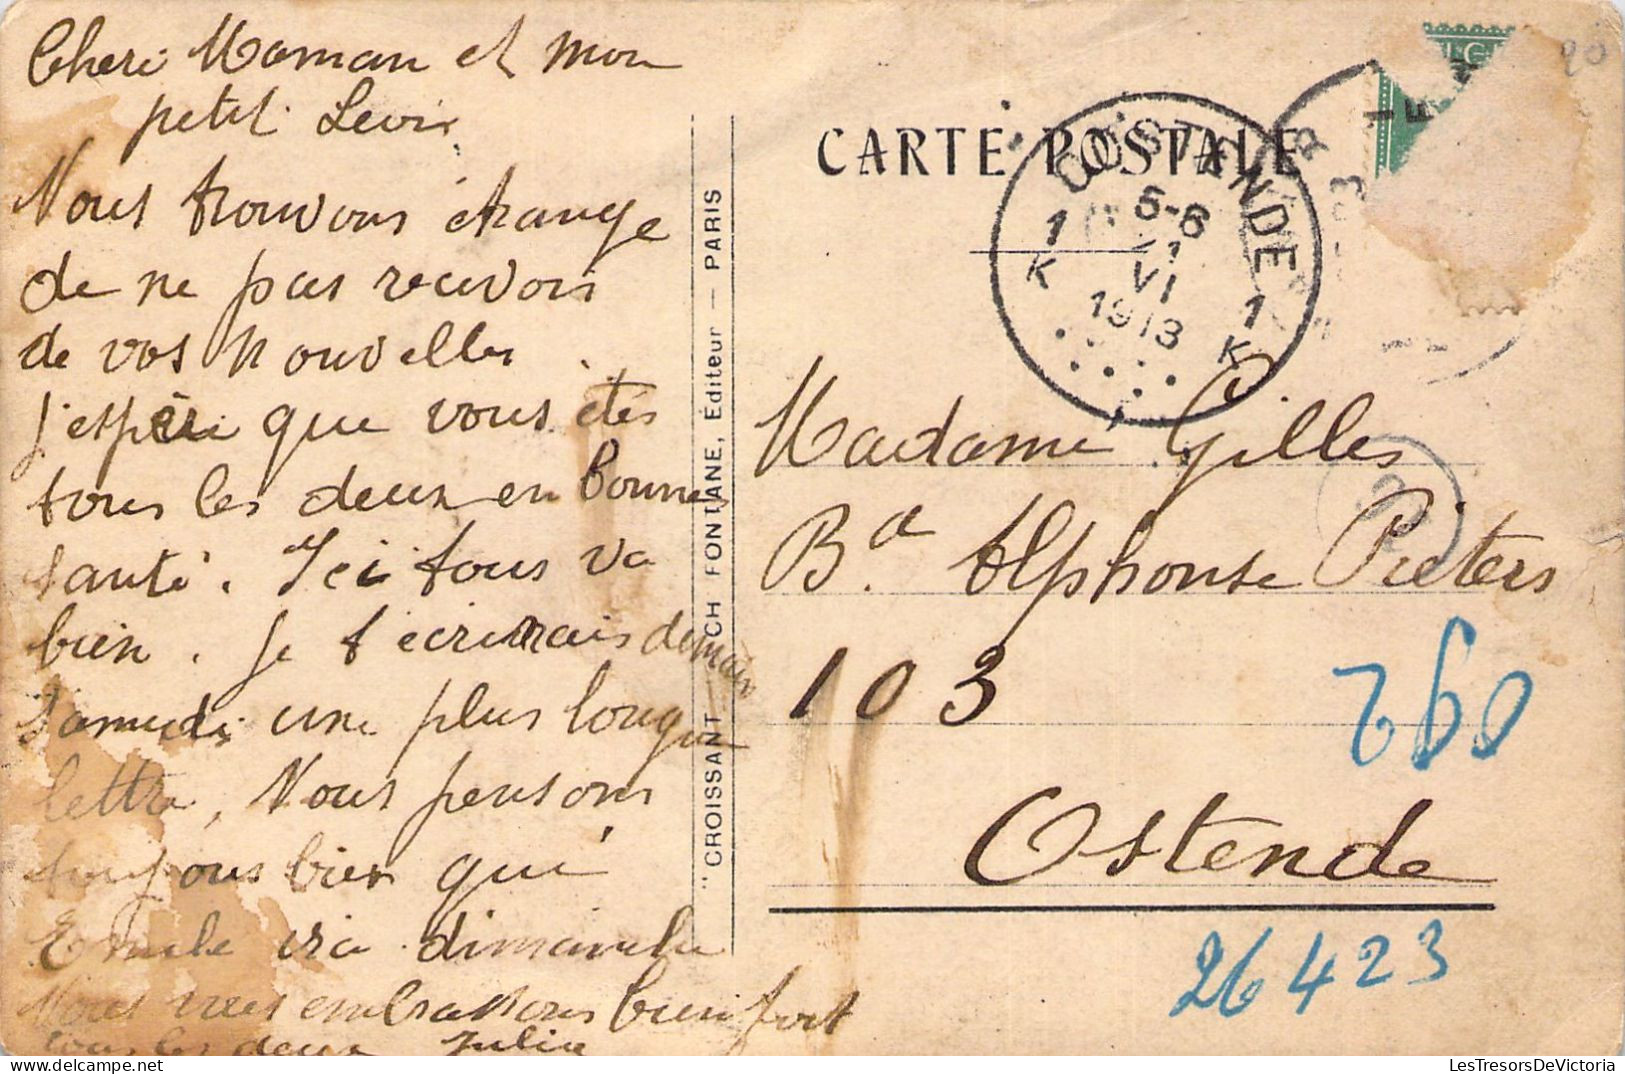 Cheri Maman et mon
petit Levis
Nous trouvons étrange
de ne pas recevois
de vos nouvelles
j'espèri que vous êtes
tous les deux en bonne
santé. Ici tous va
bien. Je t'écrirais demain
Samedi une plus longue
lettre, Nous pensons
toujours bien qui'
Emile ira dimanche
Nous vous embrassons bien fort
tous les deux Julia
"CROISSANT FONTANE, Éditeur — PARIS
CARTE POSTALE
OOSTENDE
1 K
VI
1913
1 K
Madame Gilles
Bd. Alphonse Pieters
103
Ostende
260
26423
20
LesTresorsDeVictoria